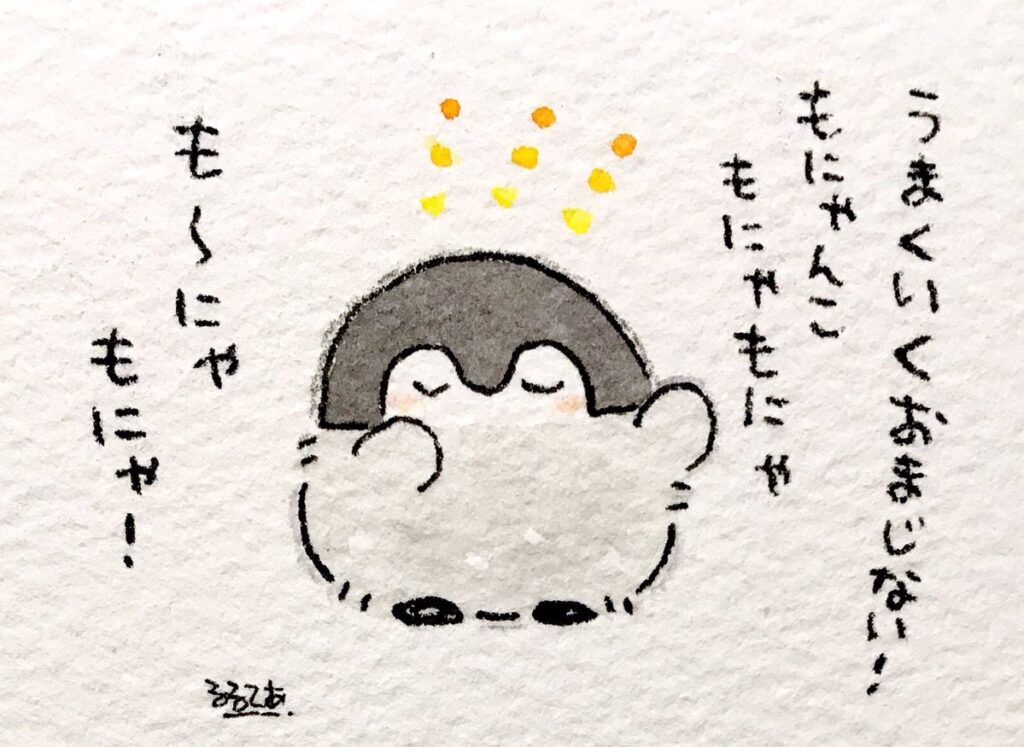 うまくいくおまじない!
もにゃんこ
もにゃもにゃ
も〜にゃ
もにゃ!
るるてあ.